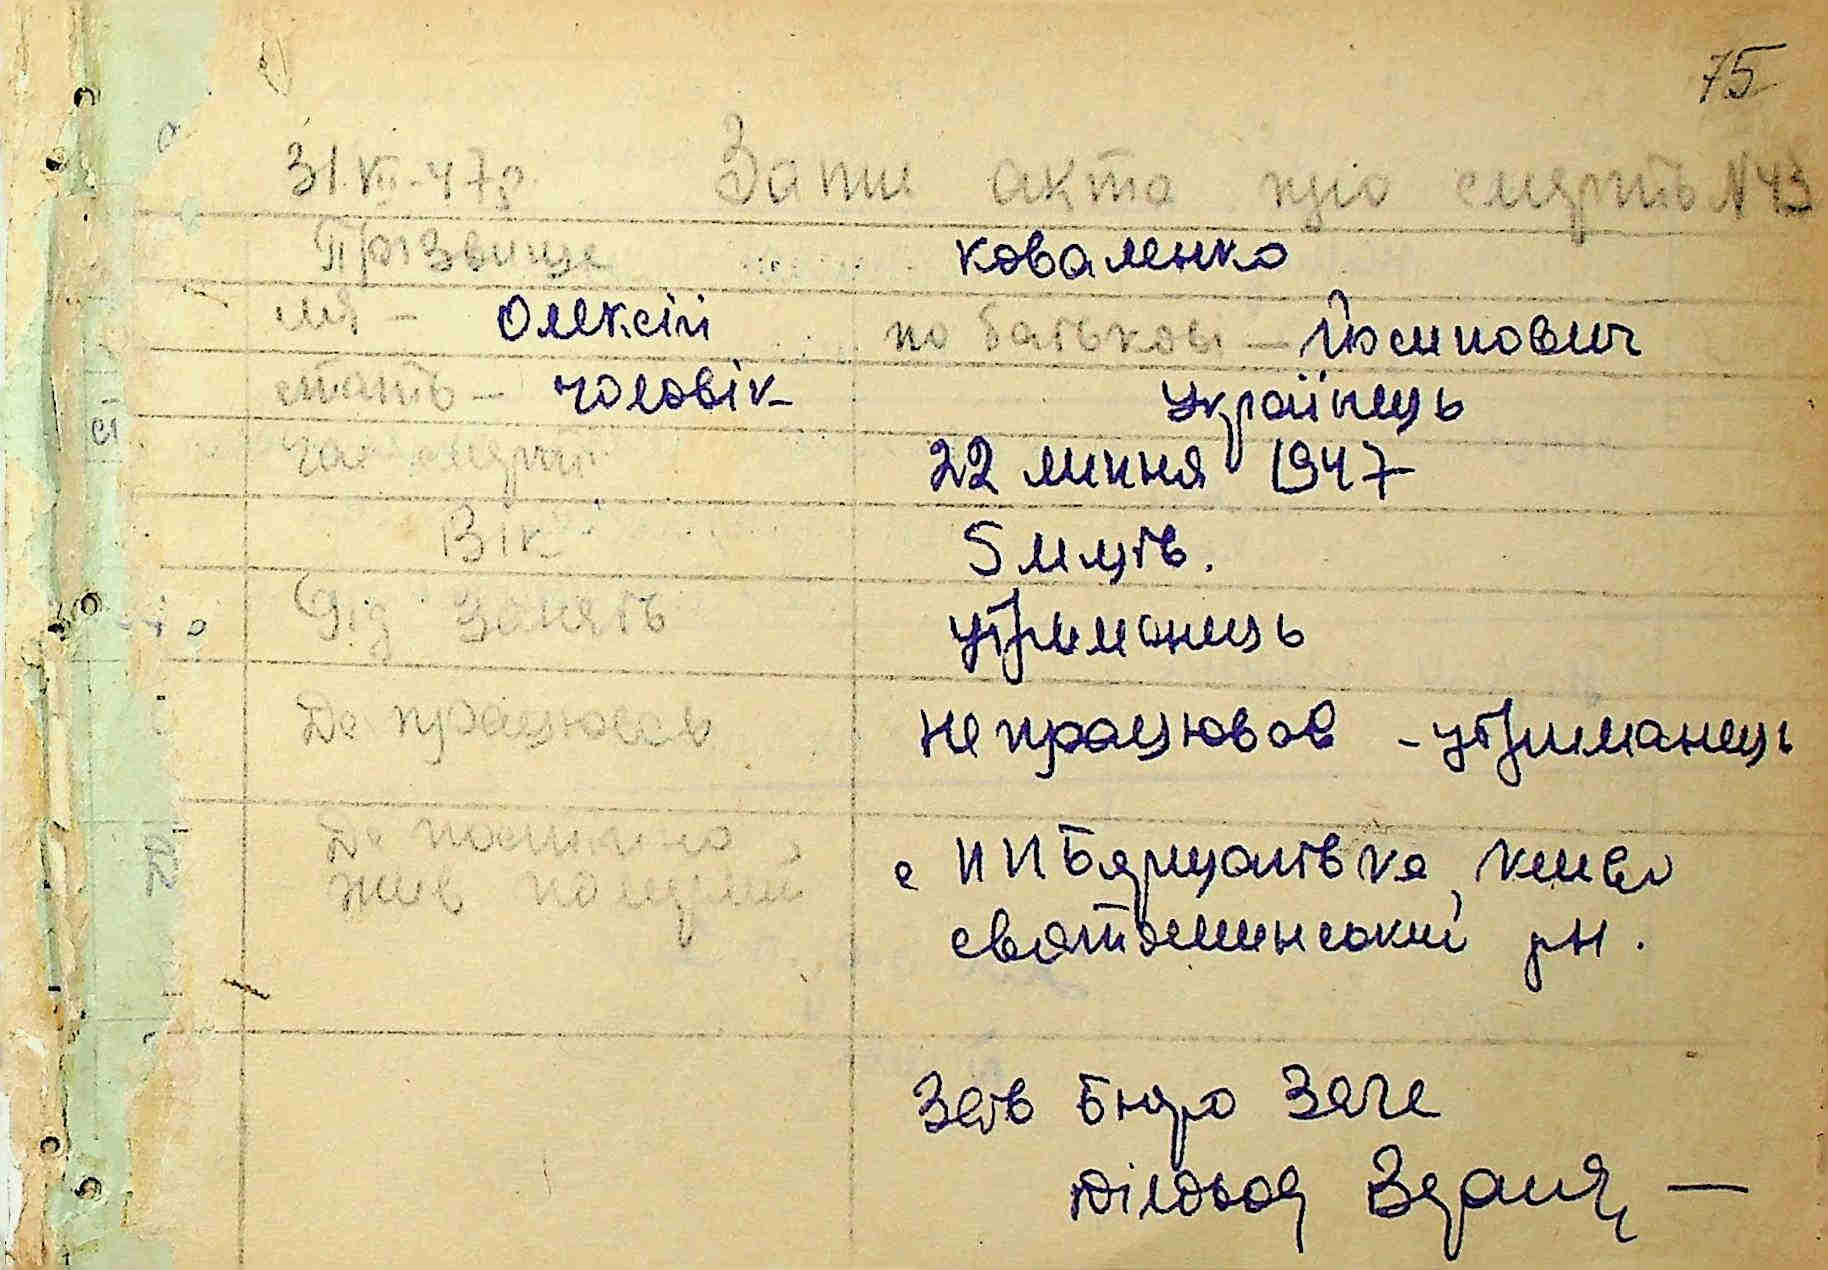 75
31.VII-47р. Запис акта про смерть N 43
Прізвище Коваленко
імя - Олексій по батькові - Йосипович
стать - чоловік українець
час смерті 22 липня 1947
Вік 5 м
Рід занять утриманець
Де працював не працював - утриманець
Де постійно
жив померший с П П Борщагівка, Києво
святошинський рн.
Зав бюро Загс
Діловод